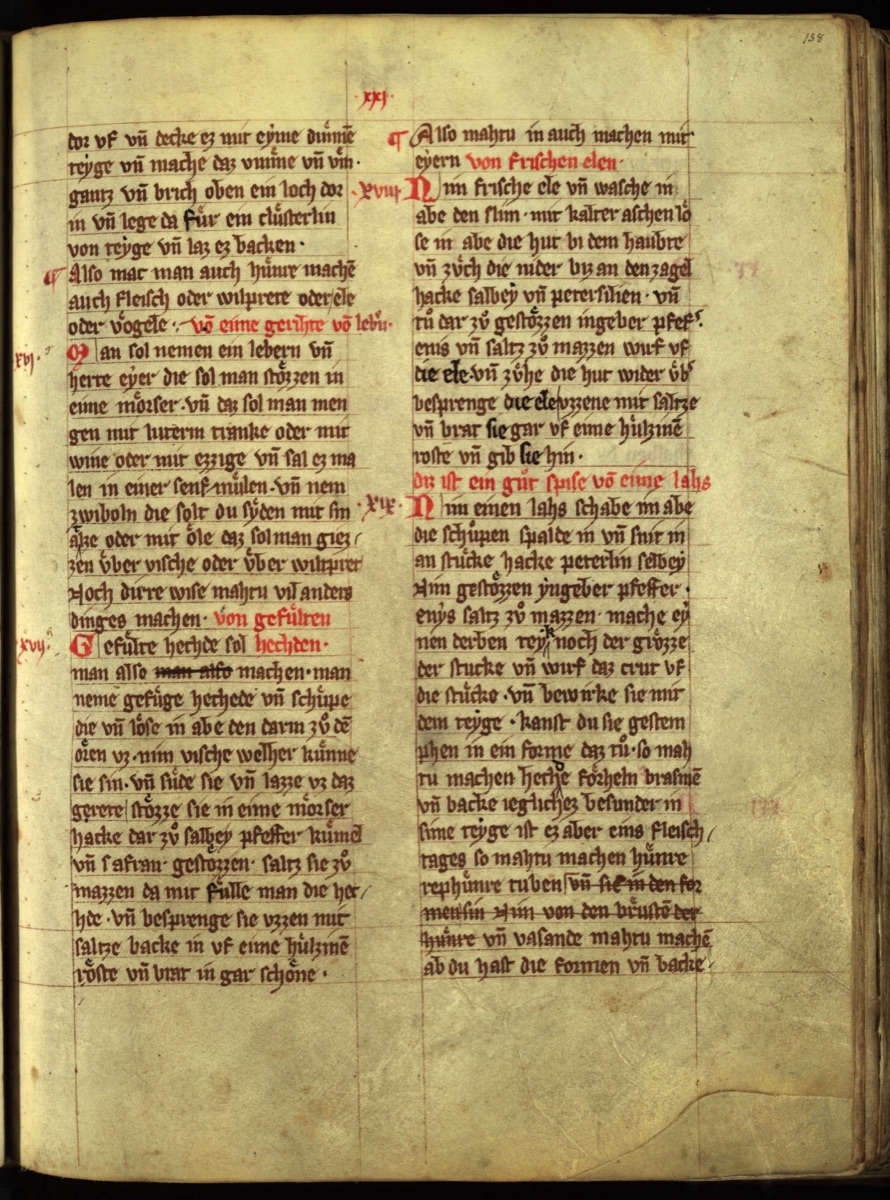 158
·xxj·
dor vf vn̄ decke ez mit eyme dunnē
teyge vn̄ mache daz vmme vn̄ vm̄·
gantz vn̄ brich oben ein loch dor
in vn̄ lege da fuͤr ein cluͤsterlin
von teyge vn̄ laz ez backen·
¶ Also mac man auch huͤnre machē
auch fleisch oder wilprete oder ele
oder voͤgele·: vō eime gerihte vō lebn̄·
xvj· Man sol nemen ein lebern vn̄
herte eyer die sol man stoͤzzen in
eime moͤrser· vn̄ daz sol man men
gen mit luterm tranke oder mit
wine oder mit ezzige vn̄ sal ez ma
len in einer senf muͤlen· vn̄ nem
zwiboln die solt du syden mit sm
alze oder mit oͤle daz sol man giez/
zen uͤber vische oder uͤber wiltpret
Noch dirre wise mahtu vil anders
dinges machen· von gefuͤlten
xvij· Gefuͤlte hechde sol hechden·
man also man also machen· man
neme gefuͤge hechede vn̄ schuͤpe
die vn̄ loͤse in abe den darm zuͦ dē
oͤren vz· nim vische welher kuͤnne
sie sin· vn̄ suͤde sie vn̄ lazze vz daz
gerete stoͤzze sie in eime moͤrser
hacke dar zuͦ salbey pfeffer kuͤmel
vn̄ safran· gestoͤzzen· saltz sie zuͦ
mazzen da mit fuͤlle man die hec/
hde· vn̄ besprenge sie vzzen mit
saltze backe in vf eime huͤlzinē
roͤste vn̄ brat in gar schoͤne·
¶ Also mahtu in auch machen mit
eyern von frischen elen·
·xviij· Nim frische ele vn̄ wasche in
abe den slim· mit kalter aschen loͤ
se in abe die hut bi dem haubte
vn̄ zvͤch die nider biz an den zagel
hacke salbey vn̄ petersilien· vn̄
tuͦ dar zuͦ gestoͤzzen ingeber pfef᷑·
enis vn̄ saltz zuͦ mazzen wirf vf
die ele· vn̄ zuͤhe die hut wider uͤb᷑
besprenge die ele vzzene mit saltze
vn̄ brat sie gar vf eime huͤlzinē
roste vn̄ gib sie hin·
diz ist ein guͦt spise vō eime lahs
·xix· Nim einen lahs schabe im abe
die schuͦpen spalde in vn̄ snit in
an stuͤcke hacke peterlin selbey
Nim gestoͤzzen yngeber pfeffer·
enys saltz zuͦ mazzen· mache ey
nen derben teyk noch der groͤzze
der stucke vn̄ wirf daz crut vf
die stuͤcke· vn̄ bewirke sie mit
dem teyge· kanst du sie gestem
phen in ein forme daz tuͦ· so mah
tu machen hechde foͤrheln brasmē
vn̄ backe ieglichez besunder in
sime teyge ist ez aber eins fleisch/
tages so mahtu machen huͤnre
rephuͤnre tuben vn̄ sie in den for
men sin Nim von den bruͤstē der
huͤnre vn̄ vasande mahtu machē
ab du hast die formen vn̄ backe·